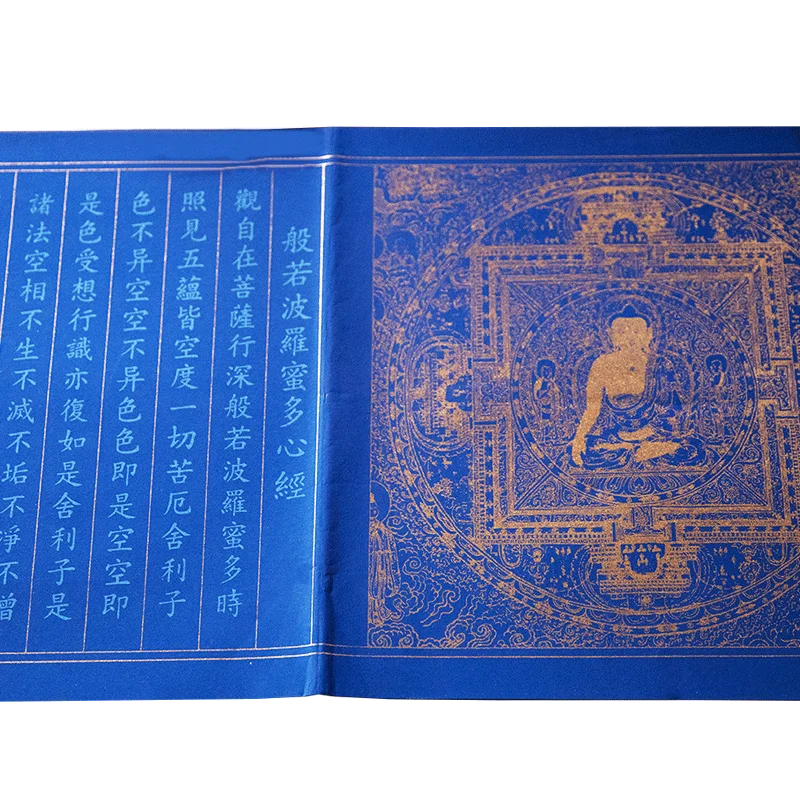 般若波羅蜜多心經
觀自在菩薩行深般若波羅蜜多時
照見五蘊皆空度一切苦厄舍利子
色不异空空不异色色即是空空即
是色受想行識亦復如是舍利子是
諸法空相不生不滅不垢不淨不增